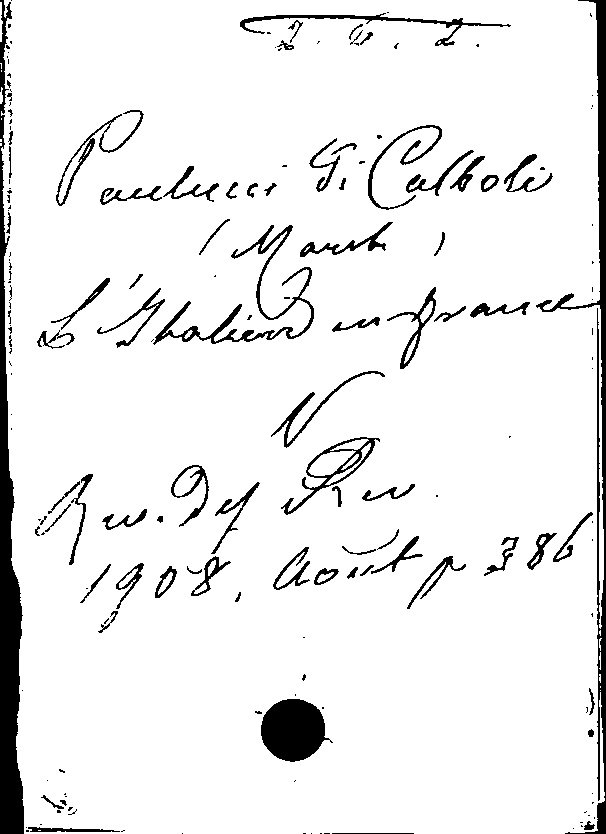 Paulucci di Calboli
(Marquis)
L'Italien en France
V
Rev. des Rev.
1908, Août p 386